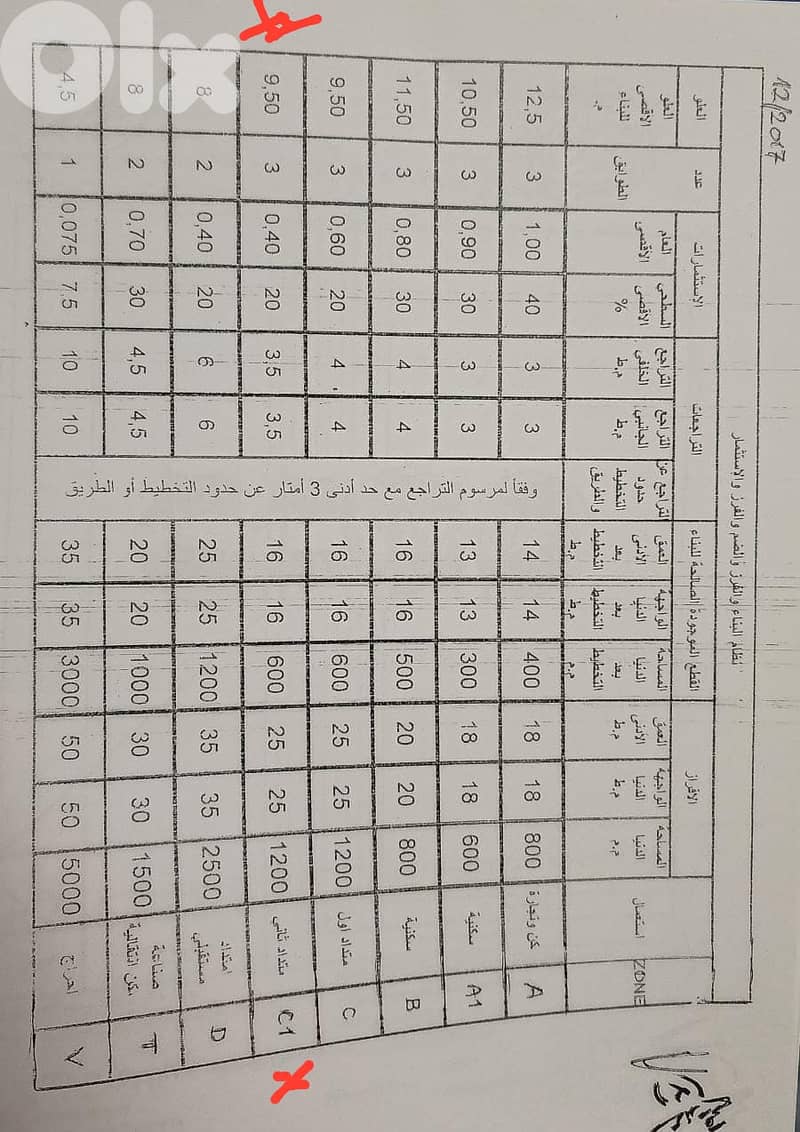 12/2017
نظام البناء والفرز والضم والفرز والإستثمار
ZONE
استعمال
الافراز
المساحة الدنيا م.م
الواجهة الدنيا م.ط
العمق الأدنى م.ط
القطع الموجودة الصالحة للبناء
المساحة الدنيا بعد التخطيط م.م
الواجهة الدنيا بعد التخطيط م.ط
العمق الأدنى بعد التخطيط م.ط
التراجعات
التراجع عن حدود التخطيط والطريق
التراجع الجانبي م.ط
التراجع الخلفي م.ط
الإستثمارات
السطحي الاقصى %
العام الاقصى
عدد الطوابق
العلو
العلو الاقصى للبناء م.
A كن وتجارة 800 18 18 400 14 14 3 3 40 1,00 3 12,5
A1 سكنية 600 18 18 300 13 13 3 3 30 0,90 3 10,50
B سكنية 800 20 20 500 16 16 4 4 30 0,80 3 11,50
C متداد اول 1200 25 25 600 16 16 4 4 20 0,60 3 9,50
C1 متداد ثاني 1200 25 25 600 16 16 3,5 3,5 20 0,40 3 9,50
D امتداد مستقبلي 2500 35 35 1200 25 25 6 6 20 0,40 2 8
T صناعة كن انتقالية 1500 30 30 1000 20 20 4,5 4,5 30 0,70 2 8
V احراج 5000 50 50 3000 35 35 10 10 7.5 0,075 1 4,5
وفقاً لمرسوم التراجع مع حد أدنى 3 أمتار عن حدود التخطيط أو الطريق
olx